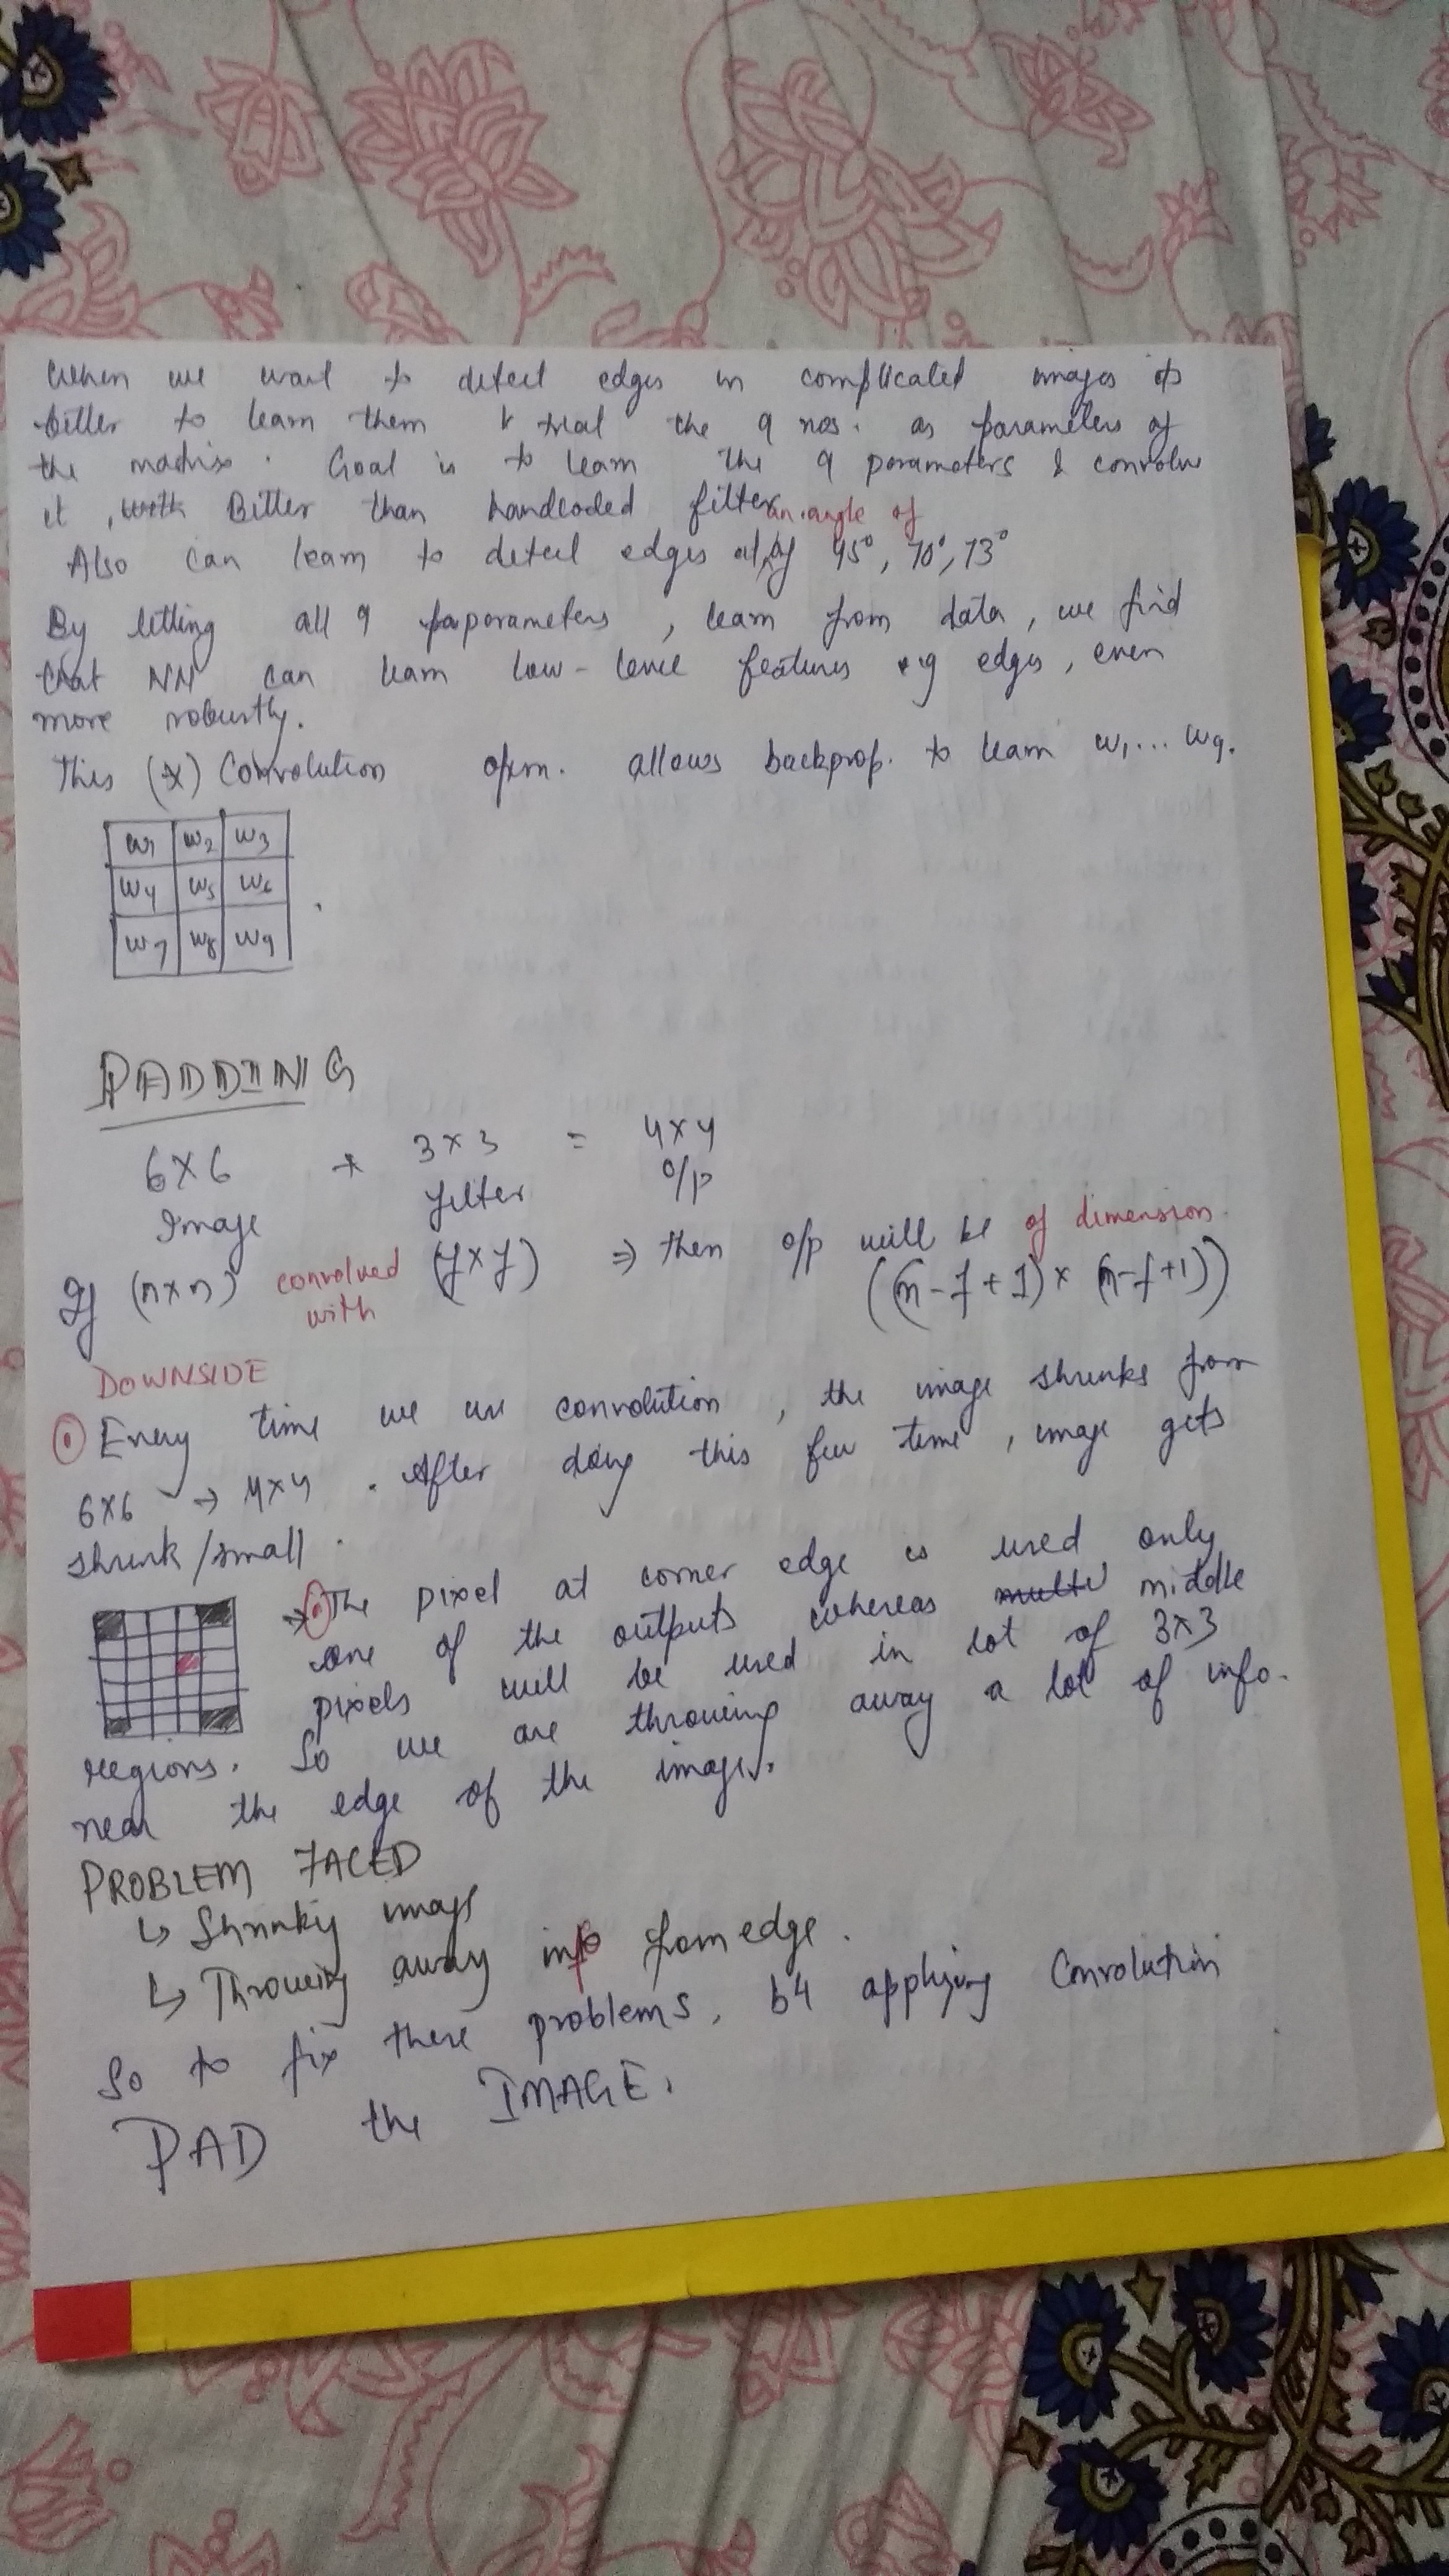 When we want to detect edges in complicated images its
better to learn them & treat the 9 nos. as parameters of
the matrix. Goal is to learn the 9 parameters & convolve
it, with Better than handcoded filter
an angle of
Also can learn to detect edges at 45°, 70°, 73°
By letting all 9 paparameters, learn from data, we find
that NN can learn low-level features eg edges, even
more robustly.
This (*) Convolution opn. allows backprop. to learn w1... w9.
w1 w2 w3
w4 w5 w6
w7 w8 w9
PADDING
6x6 * 3x3 = 4x4
Image filter o/p
If (n x n) convolved with (f x f) ⇒ then o/p will be of dimension
((n-f+1) x (n-f+1))
DOWNSIDE
① Every time we use convolution, the image shrinks from
6x6 → 4x4. After doing this few time, image gets
shrink/small.
→ The pixel at corner edge is used only
one of the outputs whereas middle
pixels will be used in lot of 3x3
regions. So we are throwing away a lot of info.
near the edge of the images.
PROBLEM FACED
↳ Shrinky image
↳ Throwing away info from edge.
So to fix these problems, b4 applying Convolution
PAD the IMAGE.